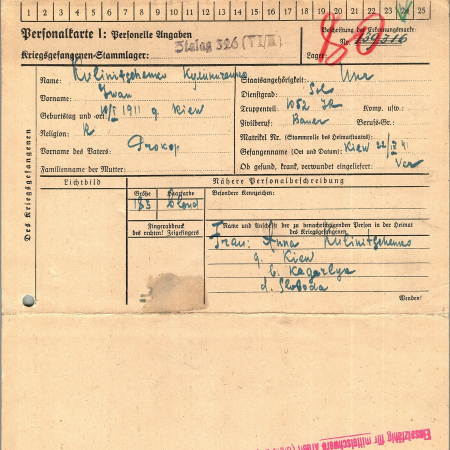 1 2 3 4 5 6 7 8 9 10 11 12 13 14 15 16 17 18 19 20 21 22 23 24 25
Personalkarte I: Personelle Angaben
Kriegsgefangenen-Stammlager: Stalag 326 (VI/K)
Beschriftung der Erkennungsmarke
Nr.
Lager:
80
Des Kriegsgefangenen
Name: Kulinitschenko
Vorname: Iwan
Geburtstag und -ort: 1911 g. Kiew
Religion: R
Vorname des Vaters: Prokop
Familienname der Mutter:
Staatsangehörigkeit: Ukr
Dienstgrad: Sol
Truppenteil: 1052 JR Komp. usw.:
Zivilberuf: Bauer Berufs-Gr.:
Matrikel Nr. (Stammrolle des Heimatstaates):
Gefangennahme (Ort und Datum): Kiew
Ob gesund, krank, verwundet eingeliefert: Ver
Lichtbild
Nähere Personalbeschreibung
Größe Haarfarbe Besondere Kennzeichen:
163 blond
Fingerabdruck
des rechten! Zeigefingers
Name und Anschrift der zu benachrichtigenden Person in der Heimat
des Kriegsgefangenen
Frau: Anna Kulinitschenko
g. Kiew
b. Kagarlyk
d. Sloboda
Wenden!
Einsatzfähig für mittelschwere Arbeit